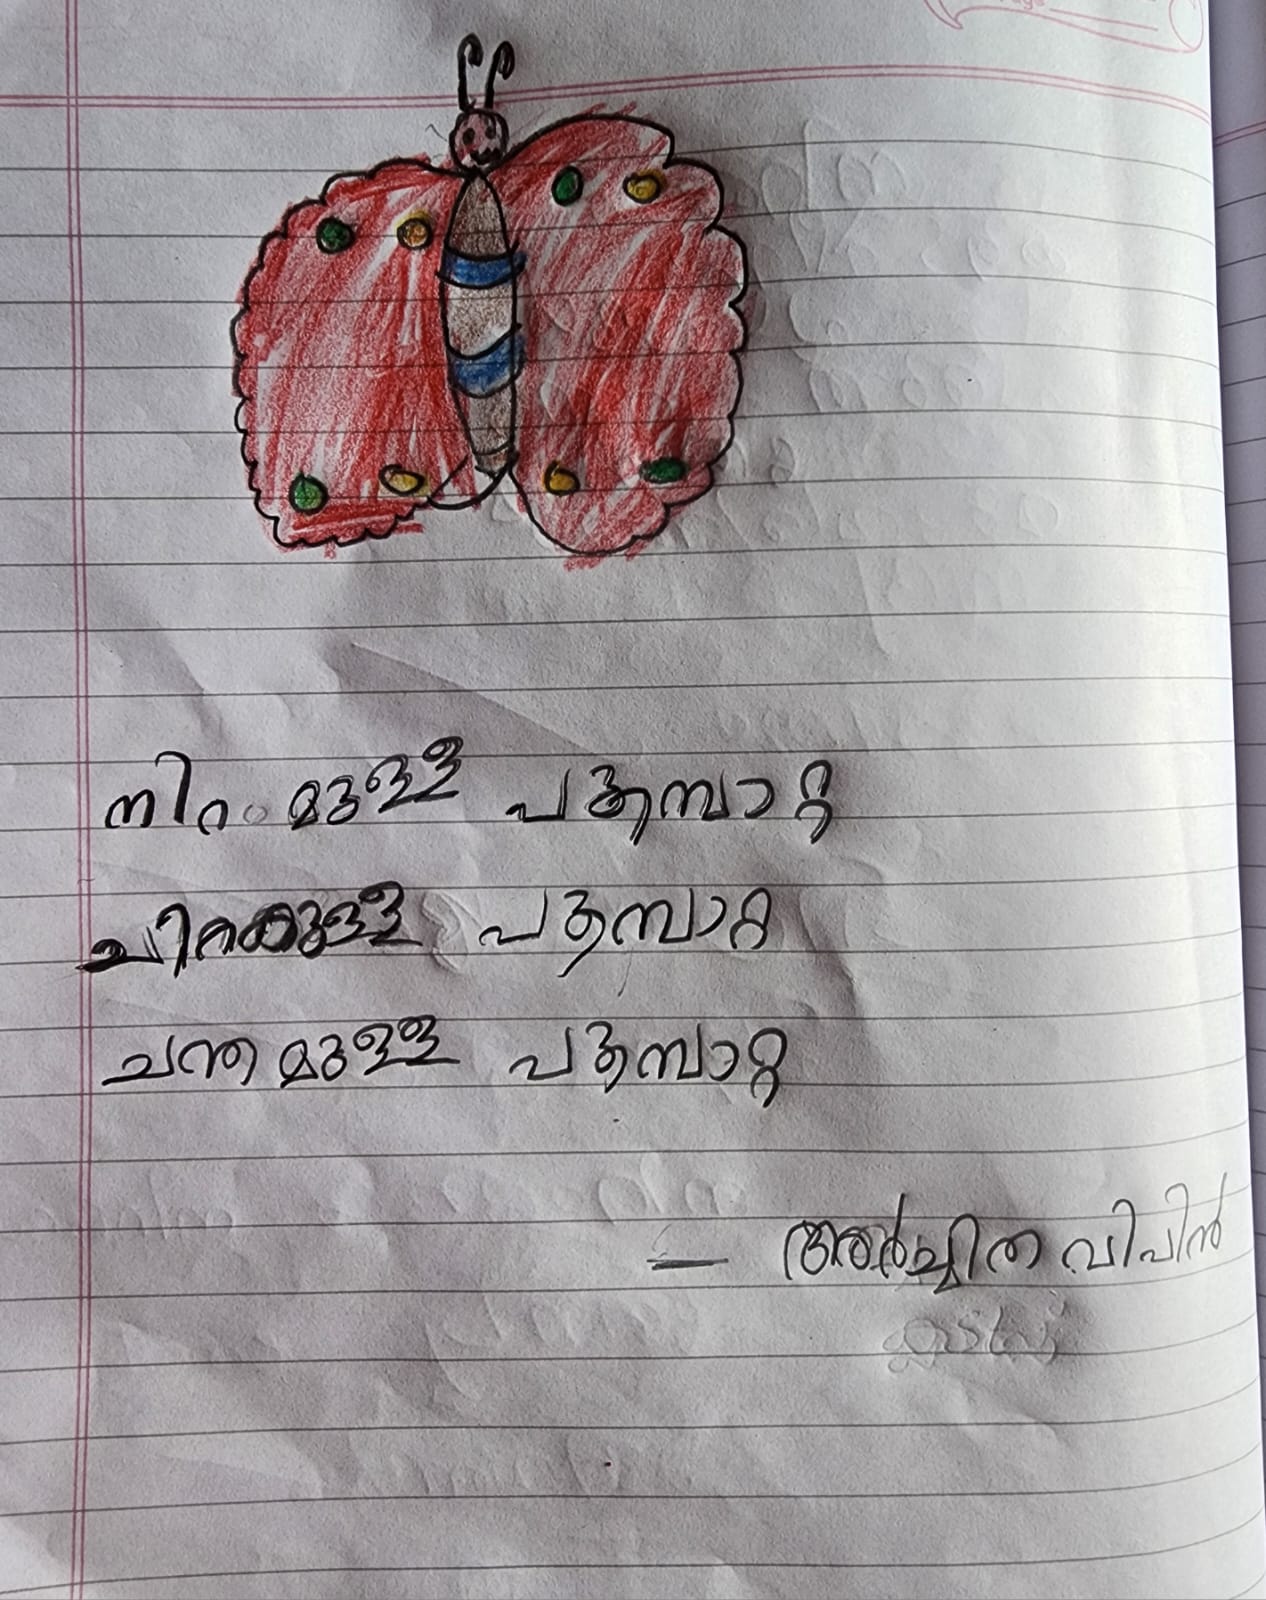 നിറം മുള്ള പൂമ്പാറ്റ
ചിറകുള്ള പൂമ്പാറ്റ
ചന്തമുള്ള പൂമ്പാറ്റ
— അർച്ചിത വിപിൻ